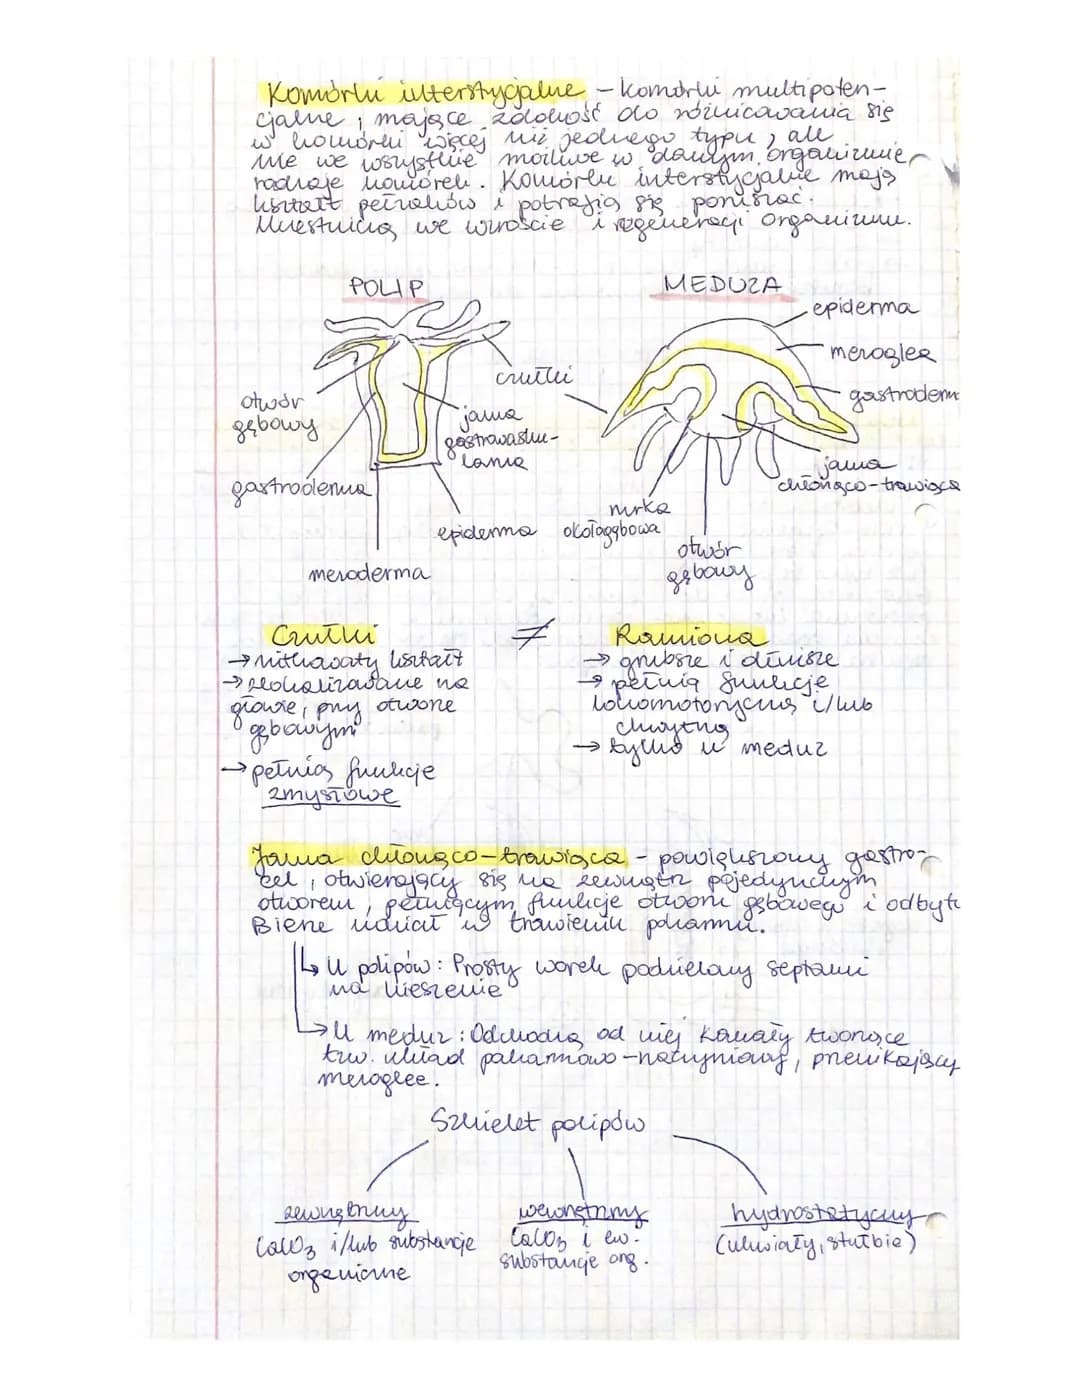 Komórki interstycjalne – komórki multipoten-
cjalne, mające zdolność do różnicowania się
w komórki więcej niż jednego typu, ale
nie we wszystkie możliwe w danym organizmie
rodzaje komórek. Komórki interstycjalne mają
kształt pełzaków i potrafią się poruszać.
Uczestniczą we wzroście i regeneracji organizmu.
POLIP
MEDUZA
epiderma
mezoglea
gastroderm
czułki
otwór
gębowy
jama
gastrowasku-
larna
jama
chłonąco-trawiąca
gastroderma
epiderma
nirka
okołogębowa
otwór
gębowy
mezoderma
Czułki ≠ Ramiona
→ nitkowaty kształt
→ zlokalizowane na
głowie, przy otworze
gębowym
→ pełnią funkcje
zmysłowe
→ grubsze i dłuższe
→ pełnią funkcje
lokomotoryczną i/lub
chwytną
→ tylko u meduz
Jama chłonąco-trawiąca - powiększony gastro-
cel, otwierający się na zewnątrz pojedynczym
otworem, pełniącym funkcje otworu gębowego i odbytu
Bierze udział w trawieniu pokarmu.
↳ U polipów: Prosty worek podzielony septami
na kieszenie
→ U meduz: Odchodzą od niej kanały tworzące
tzw. układ pokarmowo-naczyniowy, przenikający
mezogleę.
Szkielet polipów
zewnętrzny
CaCO3 i/lub substancje
organiczne
wewnętrzny
CaCO3 i ew.
substancje org.
hydrostatyczny
(ukwiały, stułbie)